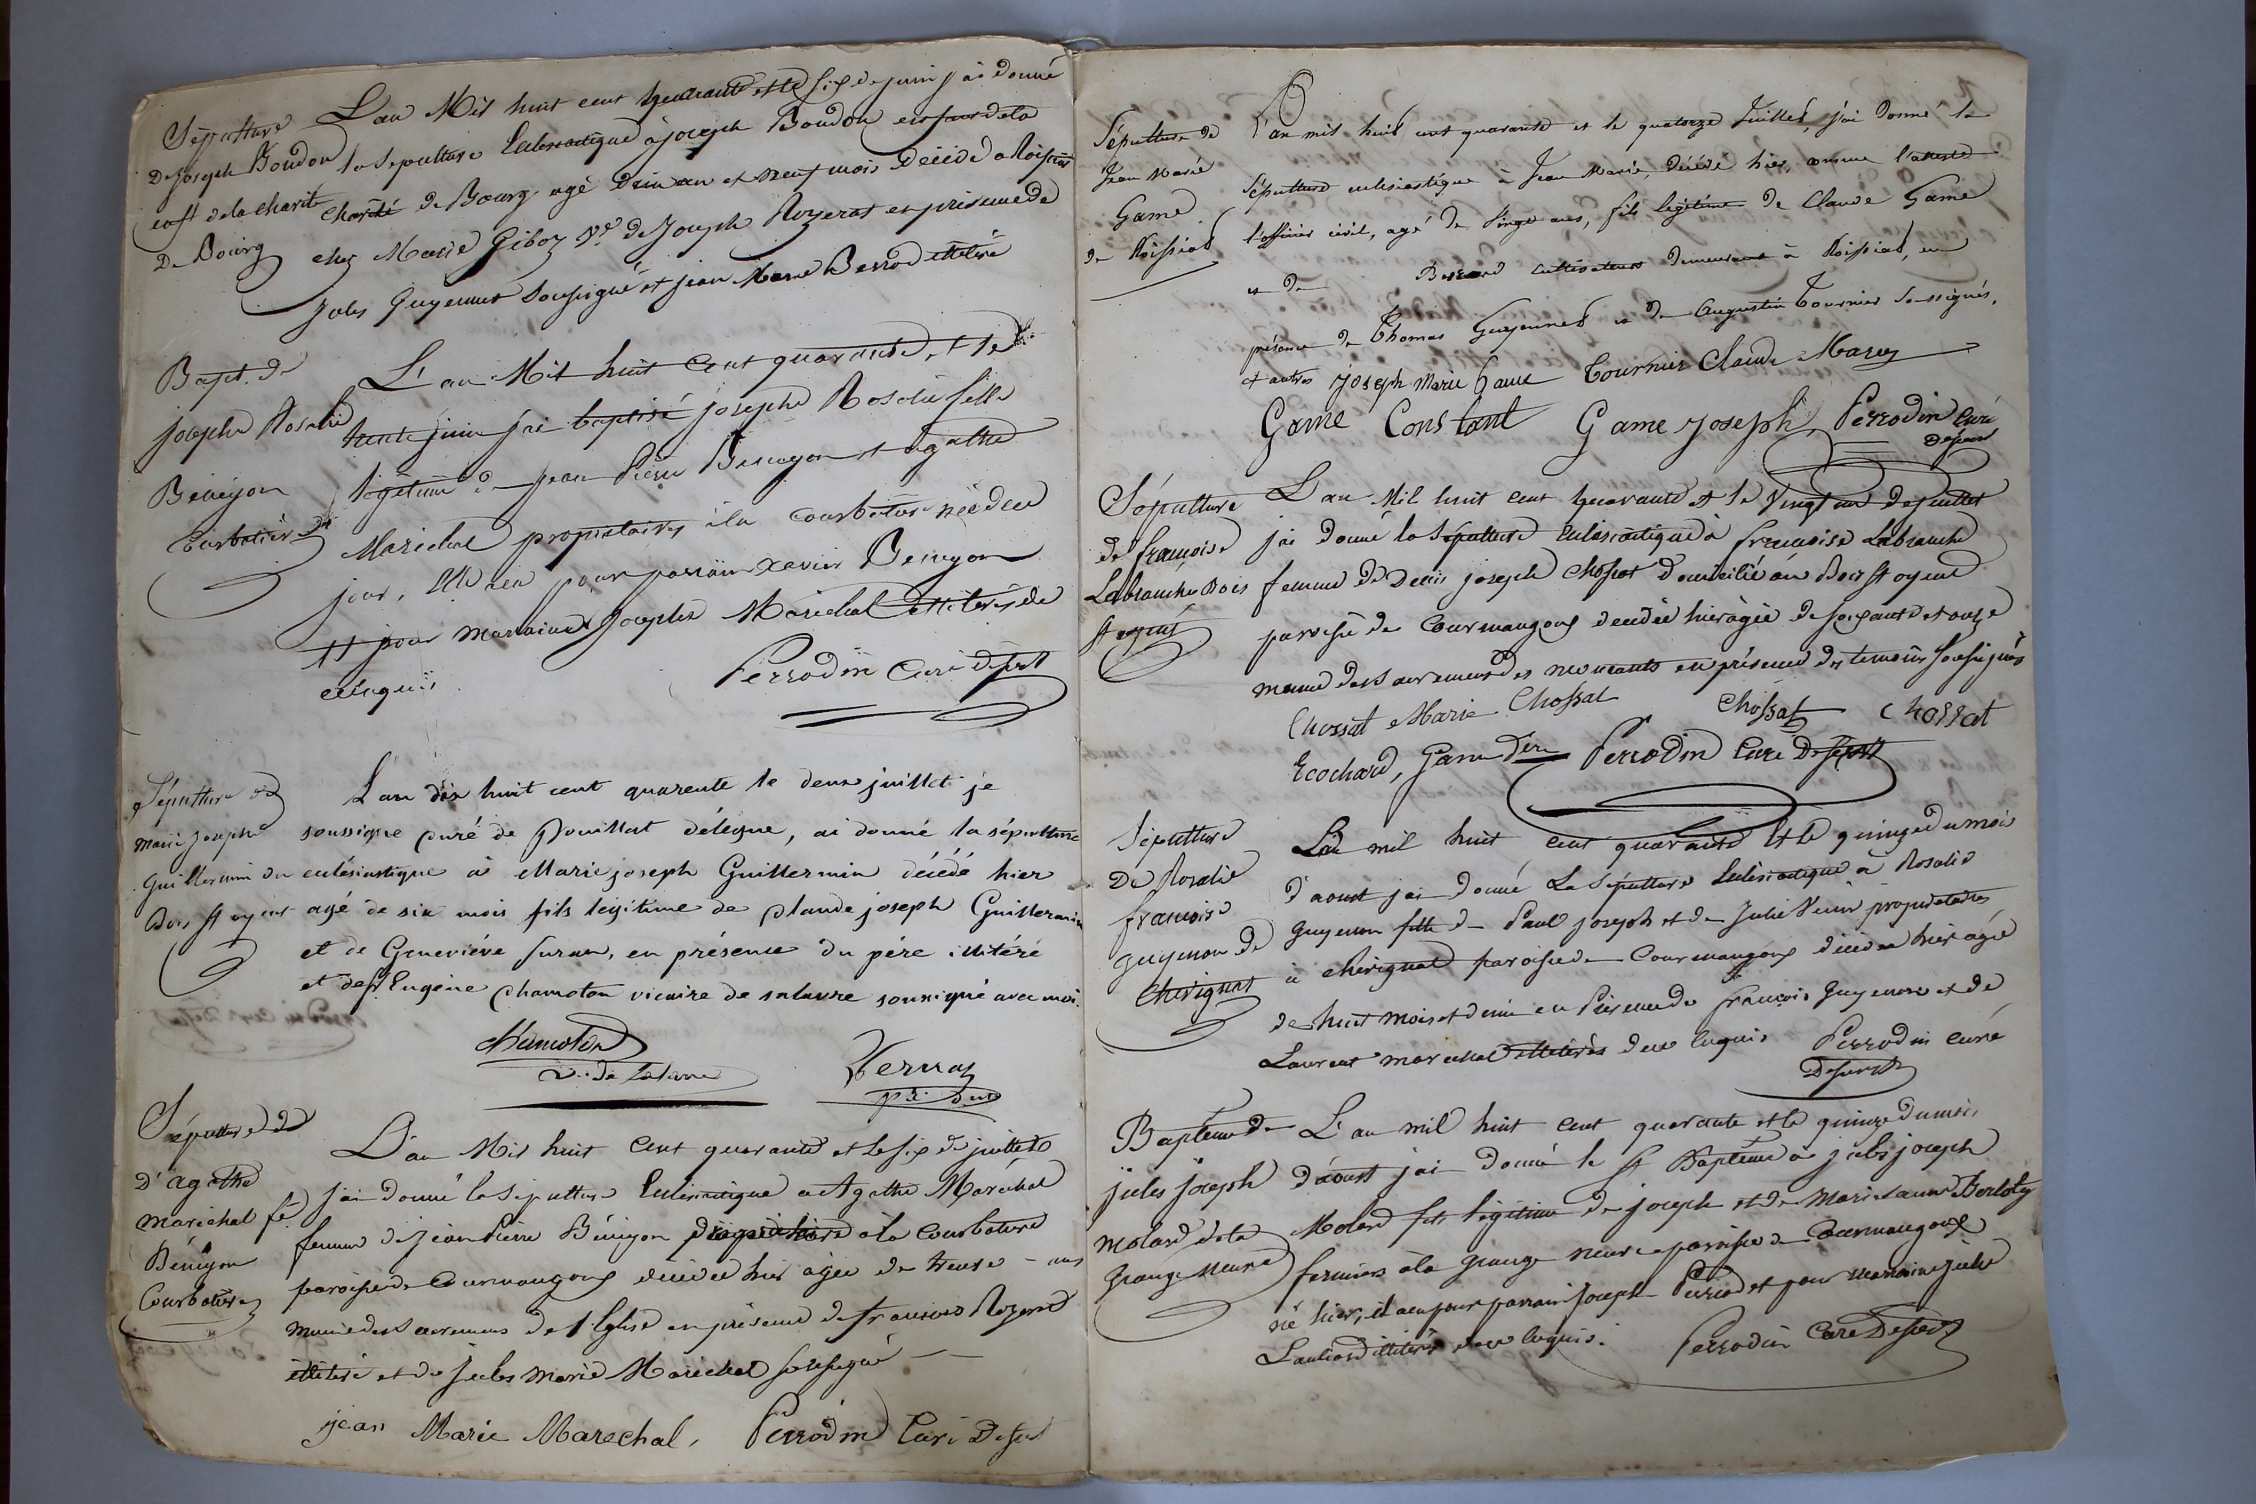 Sépulture
De Joseph Boudon
enft de la charité
De Bourg
L'an Mil huit cent quarante et le six de juin j'ai donné
la sepulture Eclésiastique à joseph Boudon enfant de la
charité de Bourg agé d'un an et neuf mois décédé a Roissiat
chez Marie Giboz Ve de Joseph Royerat en présence de
Jules Guyennet soussigné et jean Marie Berrod illétéré
Bapt. de
josephe Rosalie
Beneyon
Curbatière
L'an Mil huit Cent quarante, et le
trente juin j'ai baptisé josephe Rosalie fille
légitime de jean Pierre Beneyon et agathe
Maréchal propriétaires à la Courbature née de ce
jour, Elle a eu pour parrain Xavier Beneyon
et pour marraine josephe Maréchal illétérés de
ce enquis Perrodin Curé desert
Sépulture de
Marie Joseph
Guillermin du
Bois St oyent
L'an dix huit cent quarente le deux juillet je
soussigné curé de Pouillat délégué, ai donné la sépulture
eclésiastique à Marie joseph Guillermin décédé hier
agé de six mois fils légitime de claude joseph Guillermin
et de Geneviéve Suran, en présence du pére illitéré
et de Sr Eugène Chamoton vicaire de salavre soussigné avec moi.
Chamoton
vic. de Salavre
Sépulture de
D'agathe
Marechal fe
Beneyon
Courbature
L'an Mil huit Cent quarante et le six de juillet
j'ai donné la sépulture Eclésiastique a Agathe Maréchal
femme de jean Pierre Béneyon propriétaire à la Courbature
paroisse de Courmangoux décédée hier agée de trente - ans
munie des sacremens de l'Eglise en présence de françois Royerat
illétéré et de Jules Marie Maréchal soussigné
jean Marie Marechal, Perrodin Curé Desert
Sépulture de
Jean Marie
Game
de Roissiat
L'an mil huit cent quarante et le quatorze Juillet, j'ai donné la
Sépulture eclésiastique à Jean Marie, décédé hier, comme l'atteste
l'officier civil, agé de vingt ans, fils légitime de Claude Game
et de Berrard cultivateurs demeurant à Roissiat, en
présence de Thomas Guyennet et de Augustin Tournier soussignés,
et autres joseph Marie Game Tournier Claude Marey
Game Constant Game joseph, Perrodin Curé
Desert
Sépulture
de françoise
Labranche Bois
St oyent
L'an Mil huit cent quarante et le vingt un de juillet
j'ai donné la Sépulture Eclésiastique à françoise Labranche
femme de Denis joseph Chossat domicilié au Bois St oyent
paroisse de Courmangoux décédée hier agée de soixante et onze
munie des sacremens des mourants en présence des témoins soussignés
Chossat Marie Chossat Chossat Chossat
Ecochard, Game Perrodin Curé Desert
Sépulture
De Rosalie
françoise
guyenon de
Chevignat
L'an mil huit cent quarante et le quinze du mois
d'aoust j'ai donné La Sépulture Eclésiastique à Rosalie
guyenon fille de Paul joseph et de Julie Venin propriétaires
à chevignat paroisse de Courmangoux décédée hier agée
de huit mois et demi en Présence de françois guyenon et de
Laurent marechal illétérés de ce enquis Perrodin curé
Desert
Baptême de
jules joseph
Molard de la
grange neuve
L'an mil huit cent quarante et le quinze du mois
d'aoust j'ai donné le St Baptême à jules joseph
Molard fils légitime de joseph et de Marie anne Berlioty
fermiers à la grange neuve paroisse de Courmangoux
né hier, il a eu pour parrain joseph Perriod et pour marraine julie
Lauliard illétérés de ce enquis. Perrodin Curé Desert